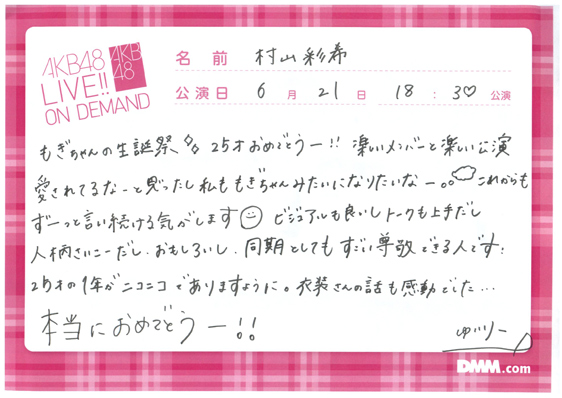 AKB48
LIVE!!
ON DEMAND
AKB
48
名前 村山彩希
公演日 6月21日 18:30公演
もぎちゃんの生誕祭 25才おめでとうー!! 楽しいメンバーと楽しい公演
愛されてるなーと思ったし私ももぎちゃんみたいになりたいなー。。これからも
ずーっと言い続ける気がします ビジュアルも良いしトークも上手だし
人柄さいこーだし、おもしろいし、同期としてもすごい尊敬できる人です!
25才の1年がニコニコでありますように。衣装さんの話も感動でした…
本当におめでとうー!!
ゆいりー
DMM.com